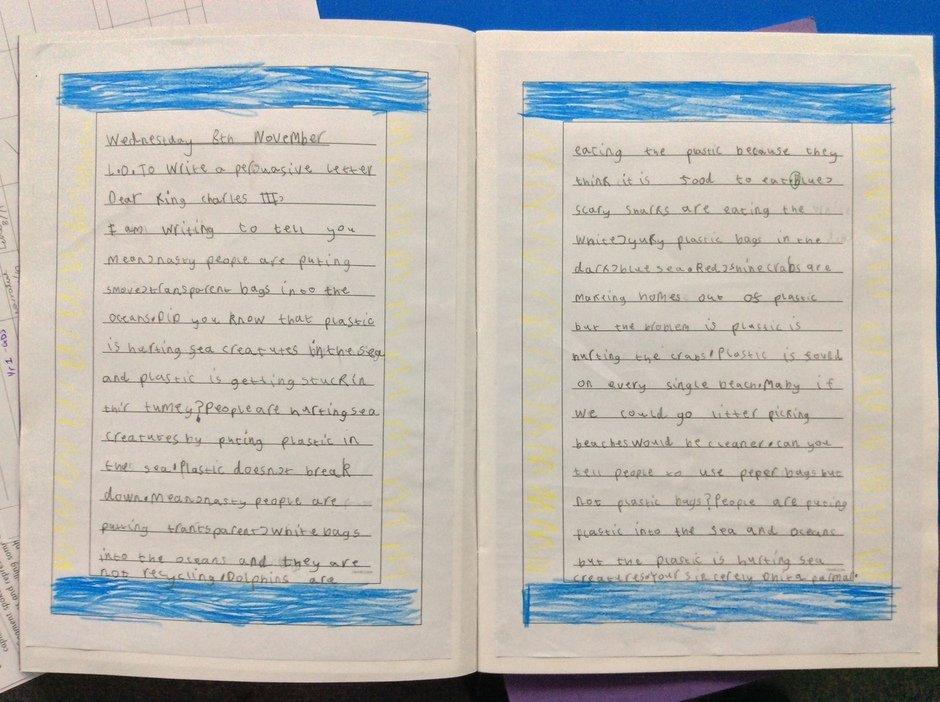 Wednesday 8th November
L.O. To Write a persuasive letter
Dear King charles III,
I am writing to tell you
mean, nasty people are puting
smove, transparent bags into the
oceans. DiD you know that plastic
is hurting sea creatures in the sea
and plastic is getting stuck in
thir tumey? People are hurting sea
creatures by puting plastic in
the sea. Plastic doesnot break
down. Mean, nasty people are
putting trantsparent, white bags
into the oceans and they are
not recycling. Dolphins are
eating the plastic because they
think it is food to eat. Blue,
scary sharks are eating the
White, yuky plastic bags in the
dark, blue sea. Red, shine crabs are
making homes out of plastic
but the problem is plastic is
hurting the crabs. Plastic is fould
on every single beach. Maby if
we could go litter picking
beaches would be cleaner. can you
tell people to use peper bags but
not plastic bags? People are puting
plastic into the sea and oceans
but the plastic is hurting sea
creatures. Your sincerely